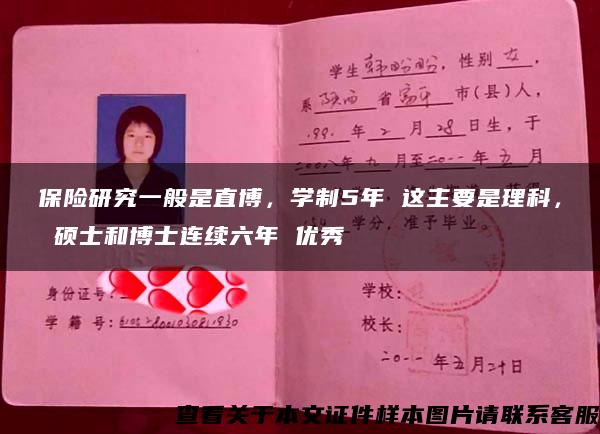 学生韩盼盼，性别女，
系陕西省富平市(县)人，
年2月28日生，于
二00八年九月至二0一一年五月
保险研究一般是直博，学制5年 这主要是理科，
学分，准予毕业。
硕士和博士连续六年 优秀
身份证号：
学籍号：
学校：
校长：
二0一一年五月二十日
查看关于本文证件样本图片请联系客服